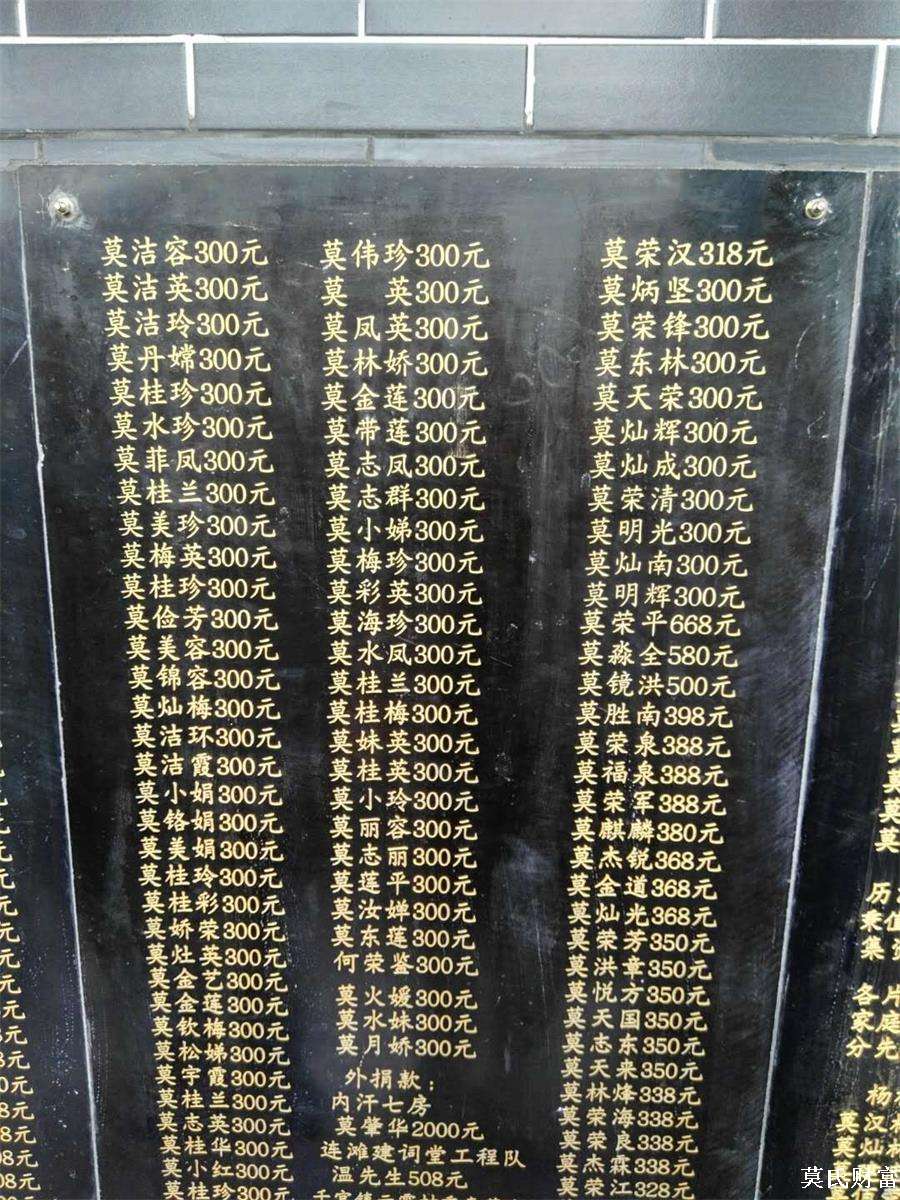 莫洁容300元
莫洁英300元
莫洁玲300元
莫丹嫦300元
莫桂珍300元
莫水珍300元
莫菲凤300元
莫桂兰300元
莫美珍300元
莫梅英300元
莫桂珍300元
莫俭芳300元
莫美容300元
莫锦容300元
莫灿梅300元
莫洁环300元
莫洁霞300元
莫小娟300元
莫铬娟300元
莫美娟300元
莫桂玲300元
莫桂彩300元
莫娇荣300元
莫灶英300元
莫金艺300元
莫金莲300元
莫钦梅300元
莫松娣300元
莫宇霞300元
莫桂兰300元
莫志英300元
莫桂华300元
莫小红300元
莫桂珍300元
莫伟珍300元
莫　英300元
莫凤英300元
莫林娇300元
莫金莲300元
莫带莲300元
莫志凤300元
莫志群300元
莫小娣300元
莫梅珍300元
莫彩英300元
莫海珍300元
莫水凤300元
莫桂兰300元
莫桂梅300元
莫妹英300元
莫桂英300元
莫小玲300元
莫丽容300元
莫志丽300元
莫莲平300元
莫汝婵300元
莫东莲300元
何荣鉴300元
莫火嫒300元
莫水妹300元
莫月娇300元
外捐款：
内汗七房
莫肇华2000元
连滩建词堂工程队
温先生508元
莫荣汉318元
莫炳坚300元
莫荣锋300元
莫东林300元
莫天荣300元
莫灿辉300元
莫灿成300元
莫荣清300元
莫明光300元
莫灿南300元
莫明辉300元
莫荣平668元
莫淼全580元
莫镜洪500元
莫胜南398元
莫荣泉388元
莫福泉388元
莫荣军388元
莫麒麟380元
莫杰锐368元
莫金道368元
莫灿光368元
莫荣芳350元
莫洪章350元
莫悦方350元
莫天国350元
莫志东350元
莫天来350元
莫林烽338元
莫荣海338元
莫荣良338元
莫杰霖338元
莫荣江328元
历
秉
集
各
家庭
分先
杨
莫汉
莫灿
莫氏财富